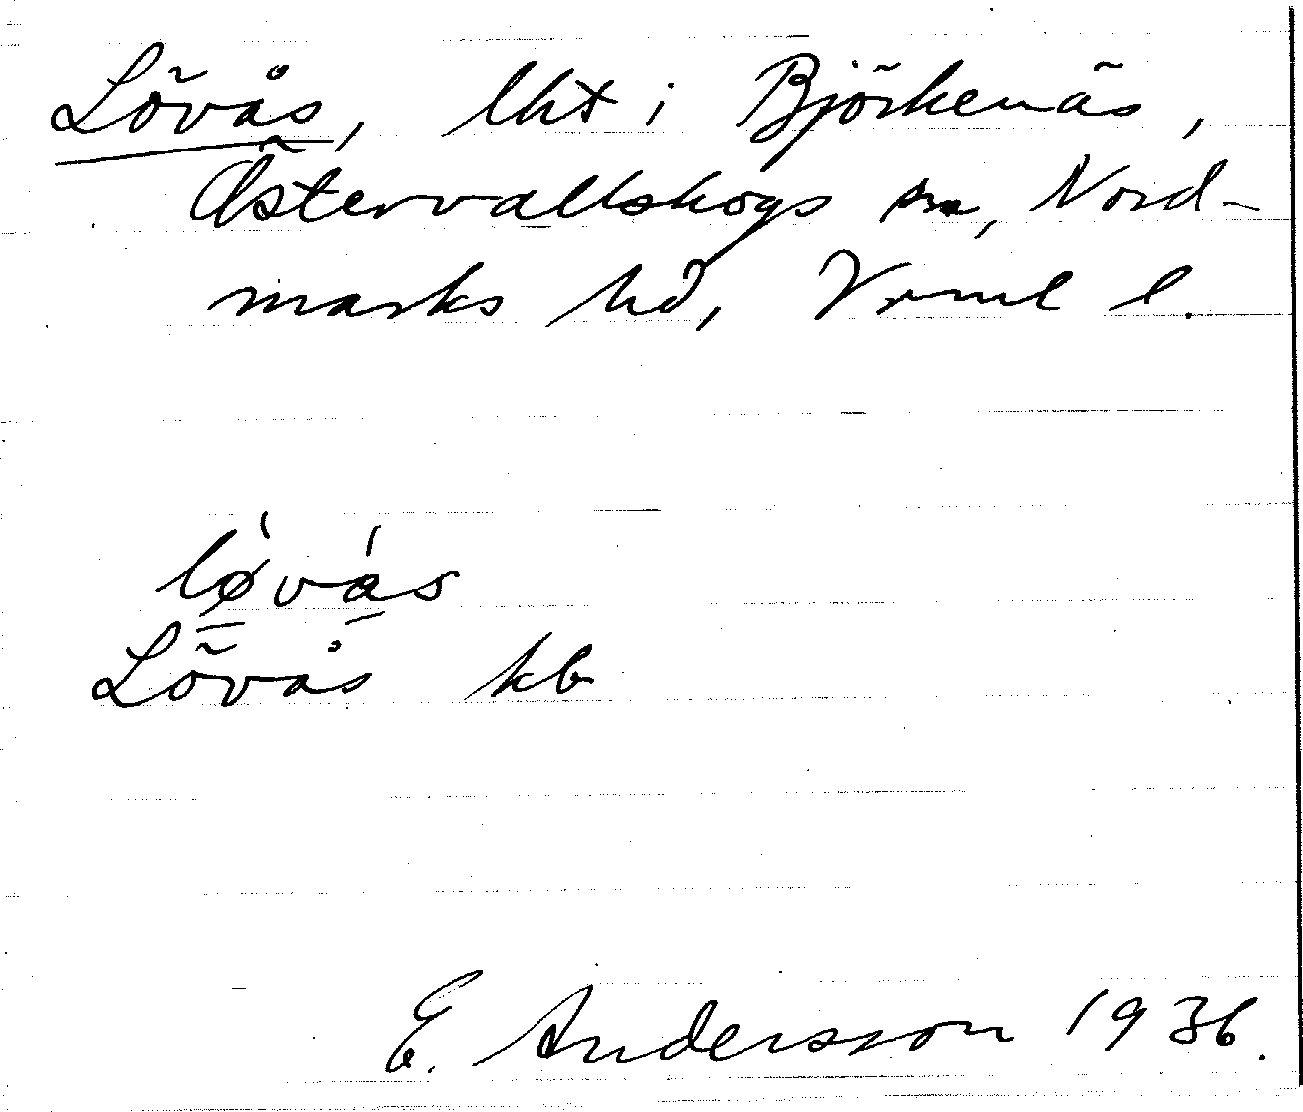 Lövås, lht i Björkenäs,
Östervallskogs sn, Nord-
marks hd, Vrml l.
lø̀vás
Lövås kb
E. Andersson 1936.